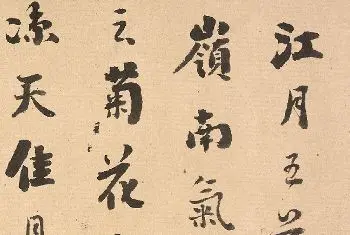 江月五
嶺南氣
云菊花
涼天佳